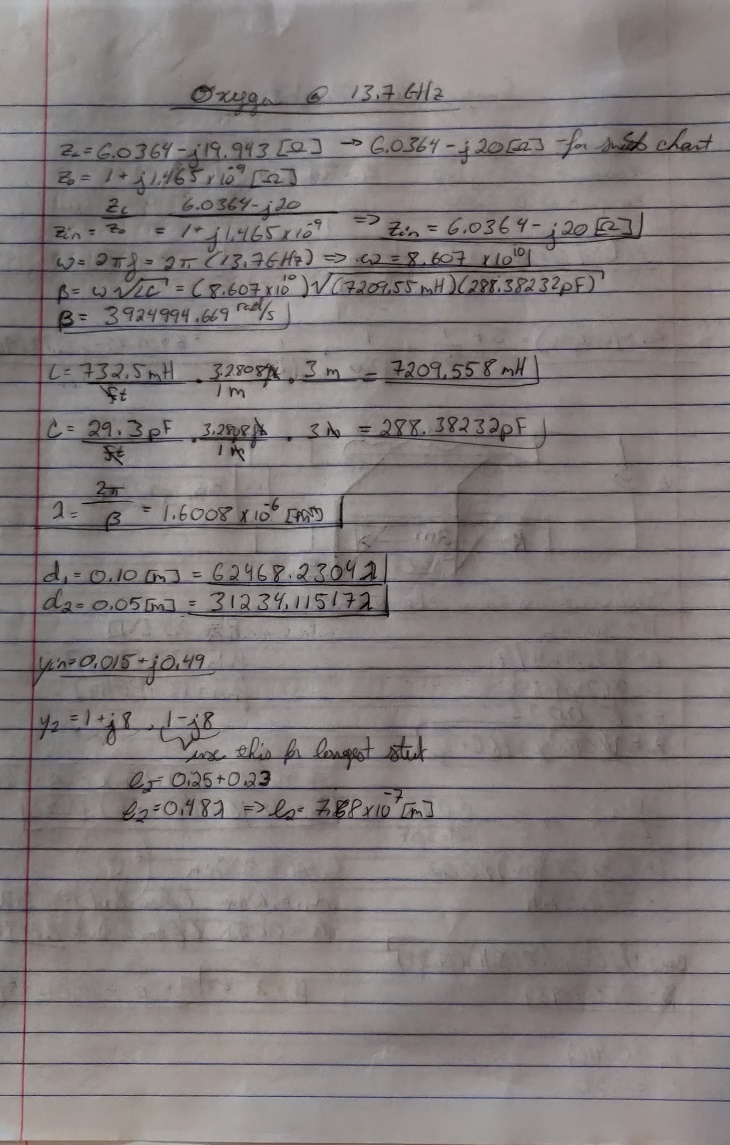 Oxygen @ 13.7 GHz
ZL = 6.0364 - j19.943 [Ω] → 6.0364 - j20 [Ω] - for smith chart
Z0 = 1 + j1.465 x 10^-9 [Ω]
Zin = ZL/Z0 = (6.0364 - j20)/(1 + j1.465 x 10^-9) ⇒ Zin = 6.0364 - j20 [Ω]
ω = 2πf = 2π (13.7GHz) ⇒ ω = 8.607 x 10^10
β = ω√LC = (8.607 x 10^10)√(7209.55 mH)(288.38232pF)
β = 3924994.669 rad/s
L = 732.5 mH/ft · 3.2808 ft/1 m · 3 m = 7209.558 mH
C = 29.3 pF/ft · 3.2808 ft/1 m · 3 m = 288.38232pF
λ = 2π/β = 1.6008 x 10^-6 [m]
d1 = 0.10 [m] = 62468.2304 λ
d2 = 0.05 [m] = 31234.11517 λ
yin = 0.015 + j0.49
y2 = 1 + j8, 1 - j8
use this for longest stub
l2 = 0.25 + 0.23
l2 = 0.48λ ⇒ l2 = 7.68 x 10^-7 [m]